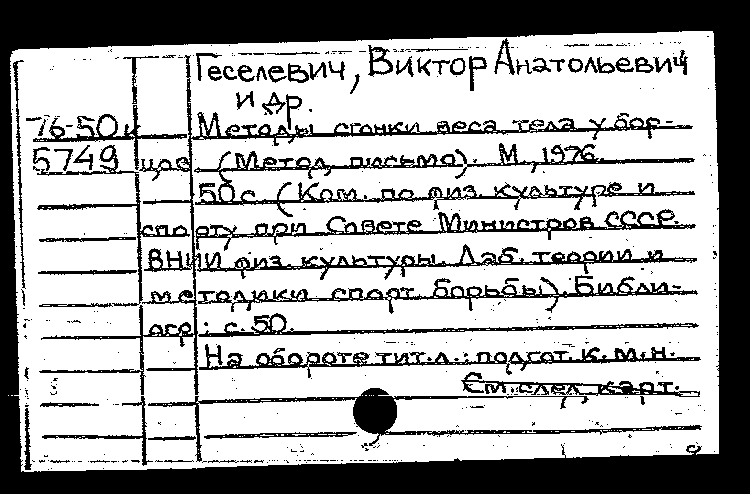 Геселевич, Виктор Анатольевич
и др.
76-50к Методы сгонки веса тела у бор-
5749 цов (Метод. письмо). М., 1976.
50 с. (Ком. по физ. культуре и
спорту при Совете Министров СССР.
ВНИИ физ. культуры. Лаб. теории и
методики спорт. борьбы). Библи-
огр.: с. 50.
На обороте тит. л.: подгот. к. м. н.
См. след. карт.